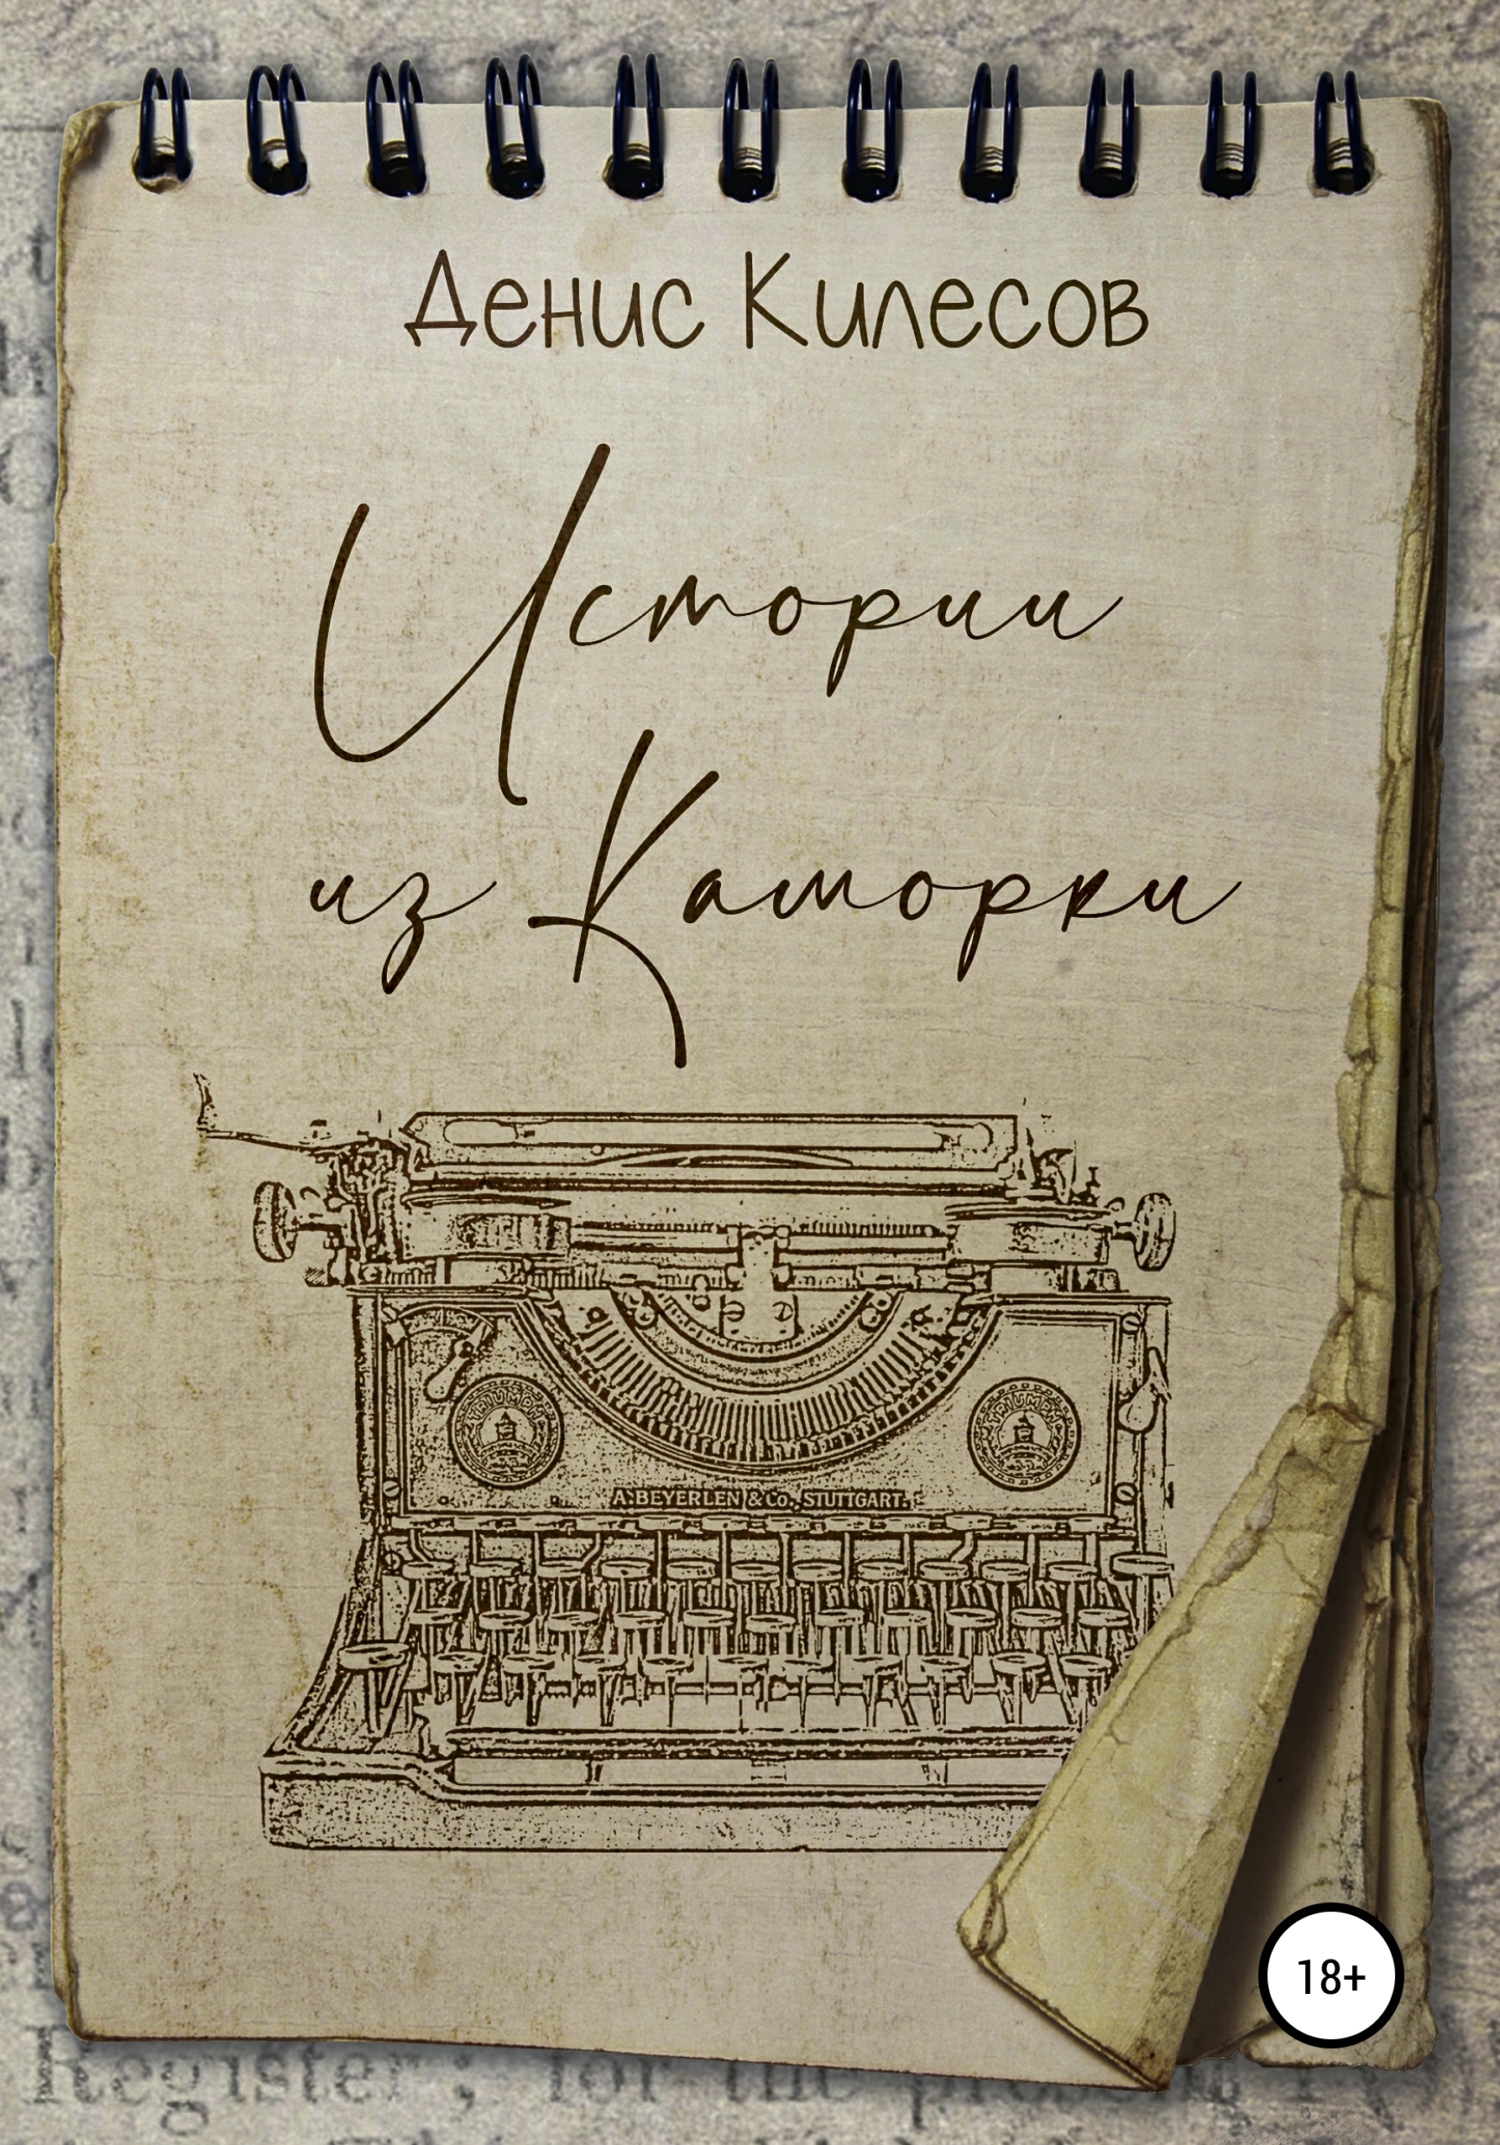 Денис Килесов
Истории
из Каморки
TRIUMPH
TRIUMPH
A. BEYERLEN & Co., STUTTGART.
18+
Register; for the pre